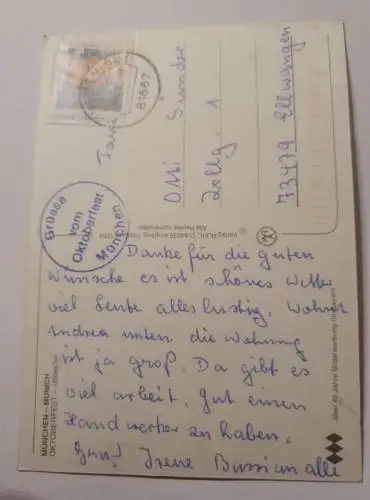 MÜNCHEN – MUNICH
OKTOBERFEST
Grüsse
vom
Oktoberfest
München
81667
Danke für die guten
Wünsche es ist schönes Wetter
viel Leute alles lustig. Wohnt
Andrea unten die Wohnung
ist ja groß. Da gibt es
viel arbeit. Gut einen
Handwerker zu haben.
Gruß Irene Bussi an alle
Otti Sunder
Zollg. 1
73479 Ellwangen
Alle Rechte vorbehalten